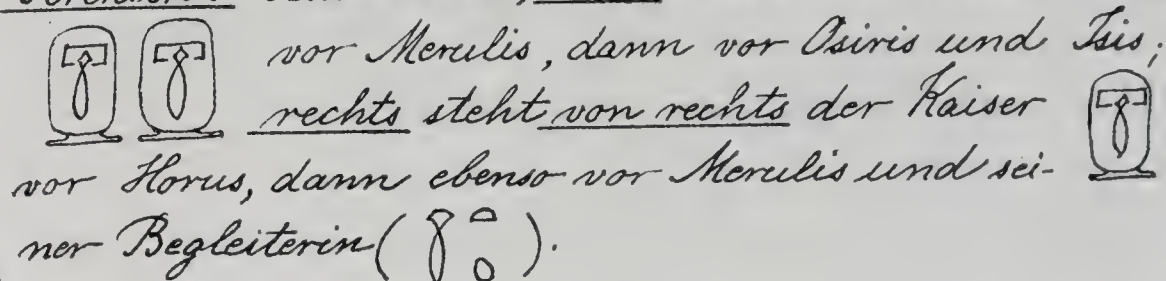 vor Merulis, dann vor Osiris und Isis;
rechts steht von rechts der Kaiser
vor Horus, dann ebenso vor Merulis und sei-
ner Begleiterin ( ).